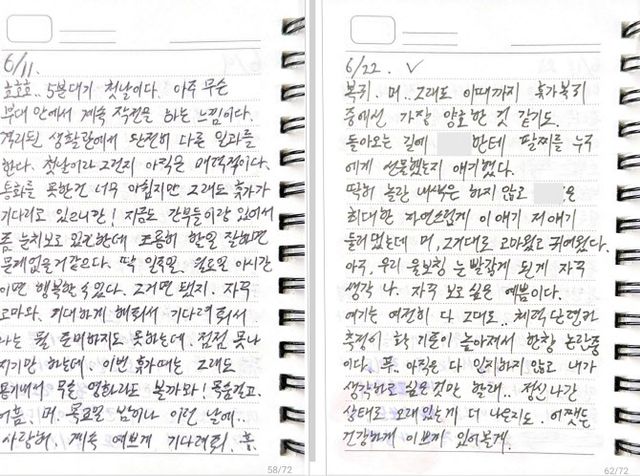 6/11.
호호호.. 5분대기 첫날이다. 아주 무슨
부대 안에서 계속 작전을 하는 느낌이다.
격리된 생활관에서 완전히 다른 일과를
한다. 첫날이라 그런지 아직은 매력적이다.
통화를 못한건 너무 아쉽지만 그래도 휴가가
기다리고 있으니깐! 지금도 간부들이랑 있어서
좀 눈치보고 있긴한데 조용히 할일 잘하면
문제없을거같다. 딱 일주일, 월요일 이시간
이면 행복할 수 있다. 그거면 됐지. 자꾸
고마워. 기대하게 해줘서 기다려줘서
나는 뭘 준비하지도 못하는데. 점점 못나
지기만 하는데. 이번 휴가때는 그래도
용기내서 무슨 영화라도 볼까봐! 목욕갈고.
어흠! 머. 목요일 밤이나 이런 날에..
사랑해. 계속 예쁘게 기다려줘. 흠.
58/72
6/22. ✓
복귀. 머.. 그래도 이때까지 휴가복귀
중에선 가장 양호한 것 같기도.
돌아오는 길에 한테 팔찌를 누구
에게 선물했는지 얘기했다.
딱히 놀란 내색은 하지 않고 은
최대한 자연스럽게 이 얘기 저 얘기
들려줬는데 머, 그거대로 고마웠고 귀여웠다.
아우, 우리 울보찡 눈 빨갛게 된게 자꾸
생각 나. 자꾸 보고싶은 예쁨이다.
여기는 여전히 다 그대로.. 체력단련과
측정이 한 기준이 높아져서 한창 논란중
이다. 푸. 아직은 다 인지하지 않고 내가
생각하고 싶은것만 할래.. 정신나간
상태로 오래있는게 더 나은지도. 어쨌든
건강하게 이쁘게 있어볼게.
62/72